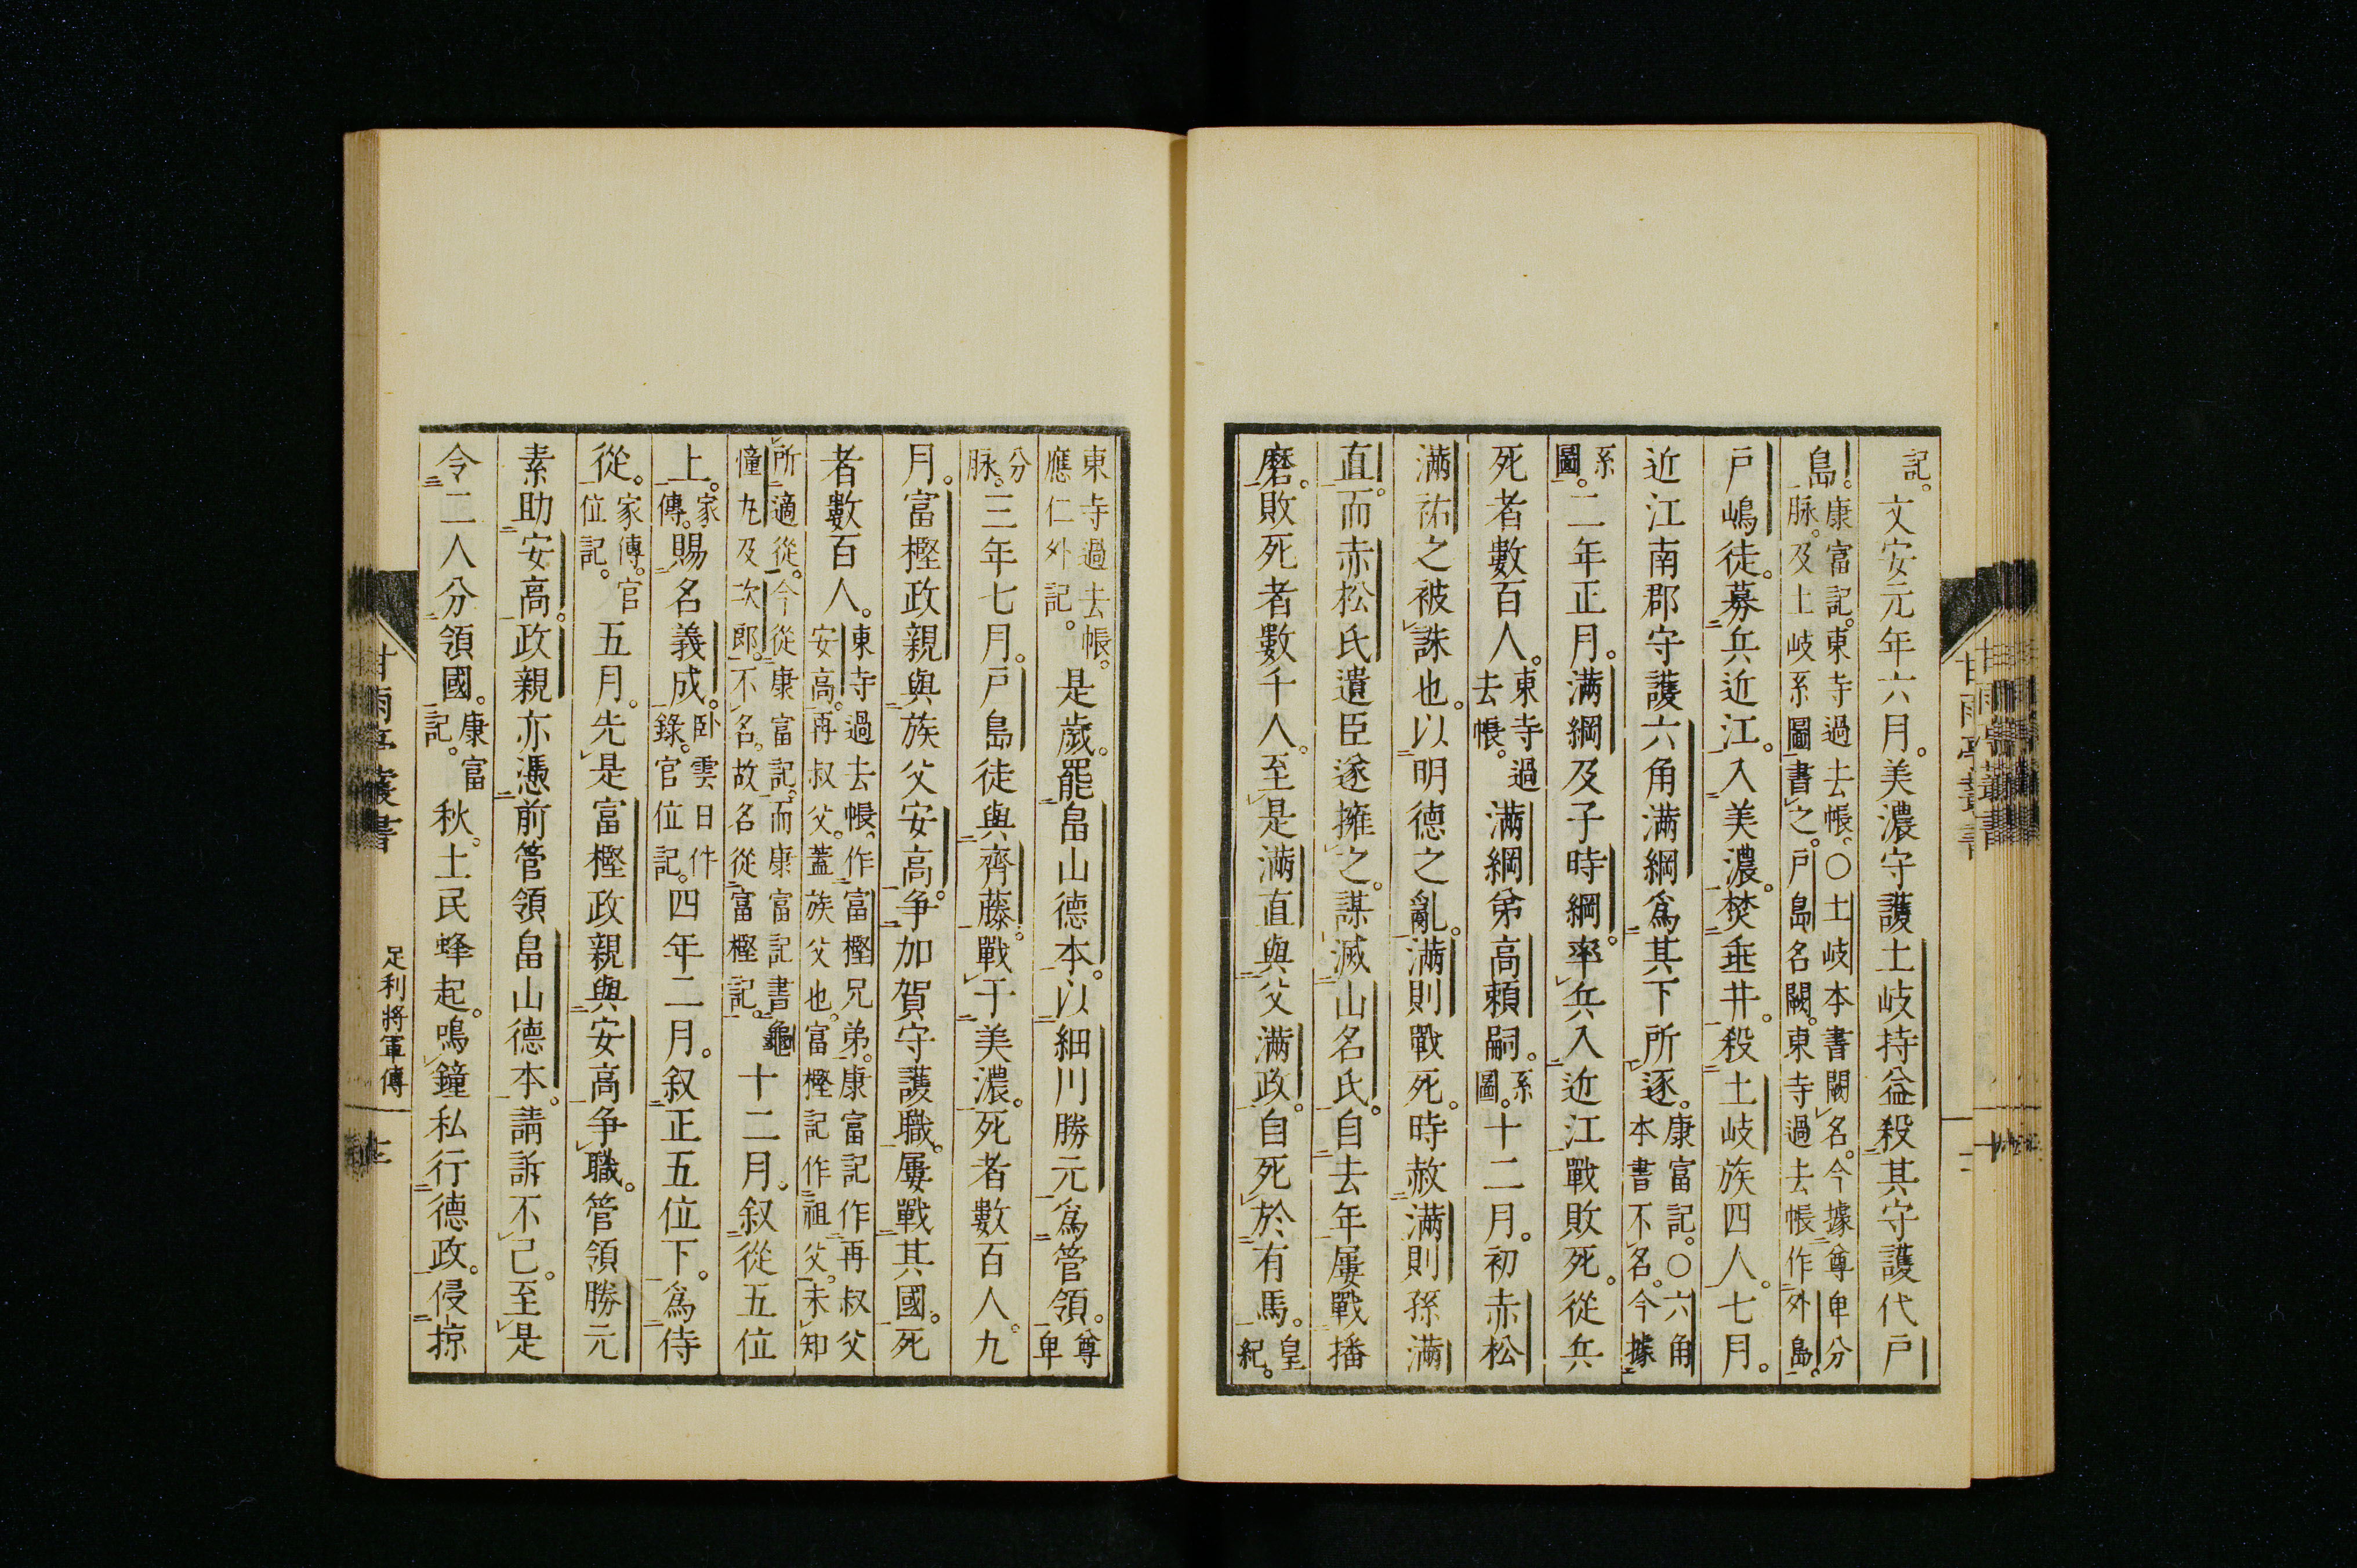 記。文安元年六月。美濃守護土岐持益殺其守護代戸
島。康富記。東寺過去帳。〇土岐本書闕名。今據尊卑分
脉。及土岐系圖書之。戸島名闕。東寺過去帳作外島。
戸嶋徒。募兵近江。入美濃。焚垂井。殺土岐族四人。七月。
近江南郡守護六角滿綱爲其下所逐。康富記。〇六角
本書不名。今據
系
圖。二年正月。滿綱及子時綱。率兵入近江戰敗死。從兵
死者數百人。東寺過
去帳。滿綱弟高頼嗣。系
圖。十二月。初赤松
滿祐之被誅也。以明德之亂。滿則戰死。時赦滿則孫滿
直。而赤松氏遺臣遂擁之。謀滅山名氏。自去年屢戰播
磨。敗死者數千人。至是滿直與父滿政。自死於有馬。皇
紀。
東寺過去帳。
應仁外記。是歳。罷畠山德本。以細川勝元爲管領。尊
卑
分
脉。三年七月。戸島徒與齊藤。戰于美濃。死者數百人。九
月。富樫政親與族父安高。争加賀守護職。屢戰其國。死
者數百人。東寺過去帳。作富樫兄弟。康富記作再叔父
安高。再叔父。蓋族父也。富樫記作祖父。未知
所適從。今從康富記。而康富記書龜
憧丸及次郎。不名。故名從富樫記。十二月。叙從五位
上。家
傳。賜名義成。卧雲日件
錄。官位記。四年二月。叙正五位下。爲侍
從。家傳。官
位記。五月。先是富樫政親與安高争職。管領勝元
素助安高。政親亦憑前管領畠山德本。請訴不已。至是
令二人分領國。康富
記。秋。土民蜂起。鳴鐘私行德政。侵掠
甘雨亭叢書
足利將軍傳